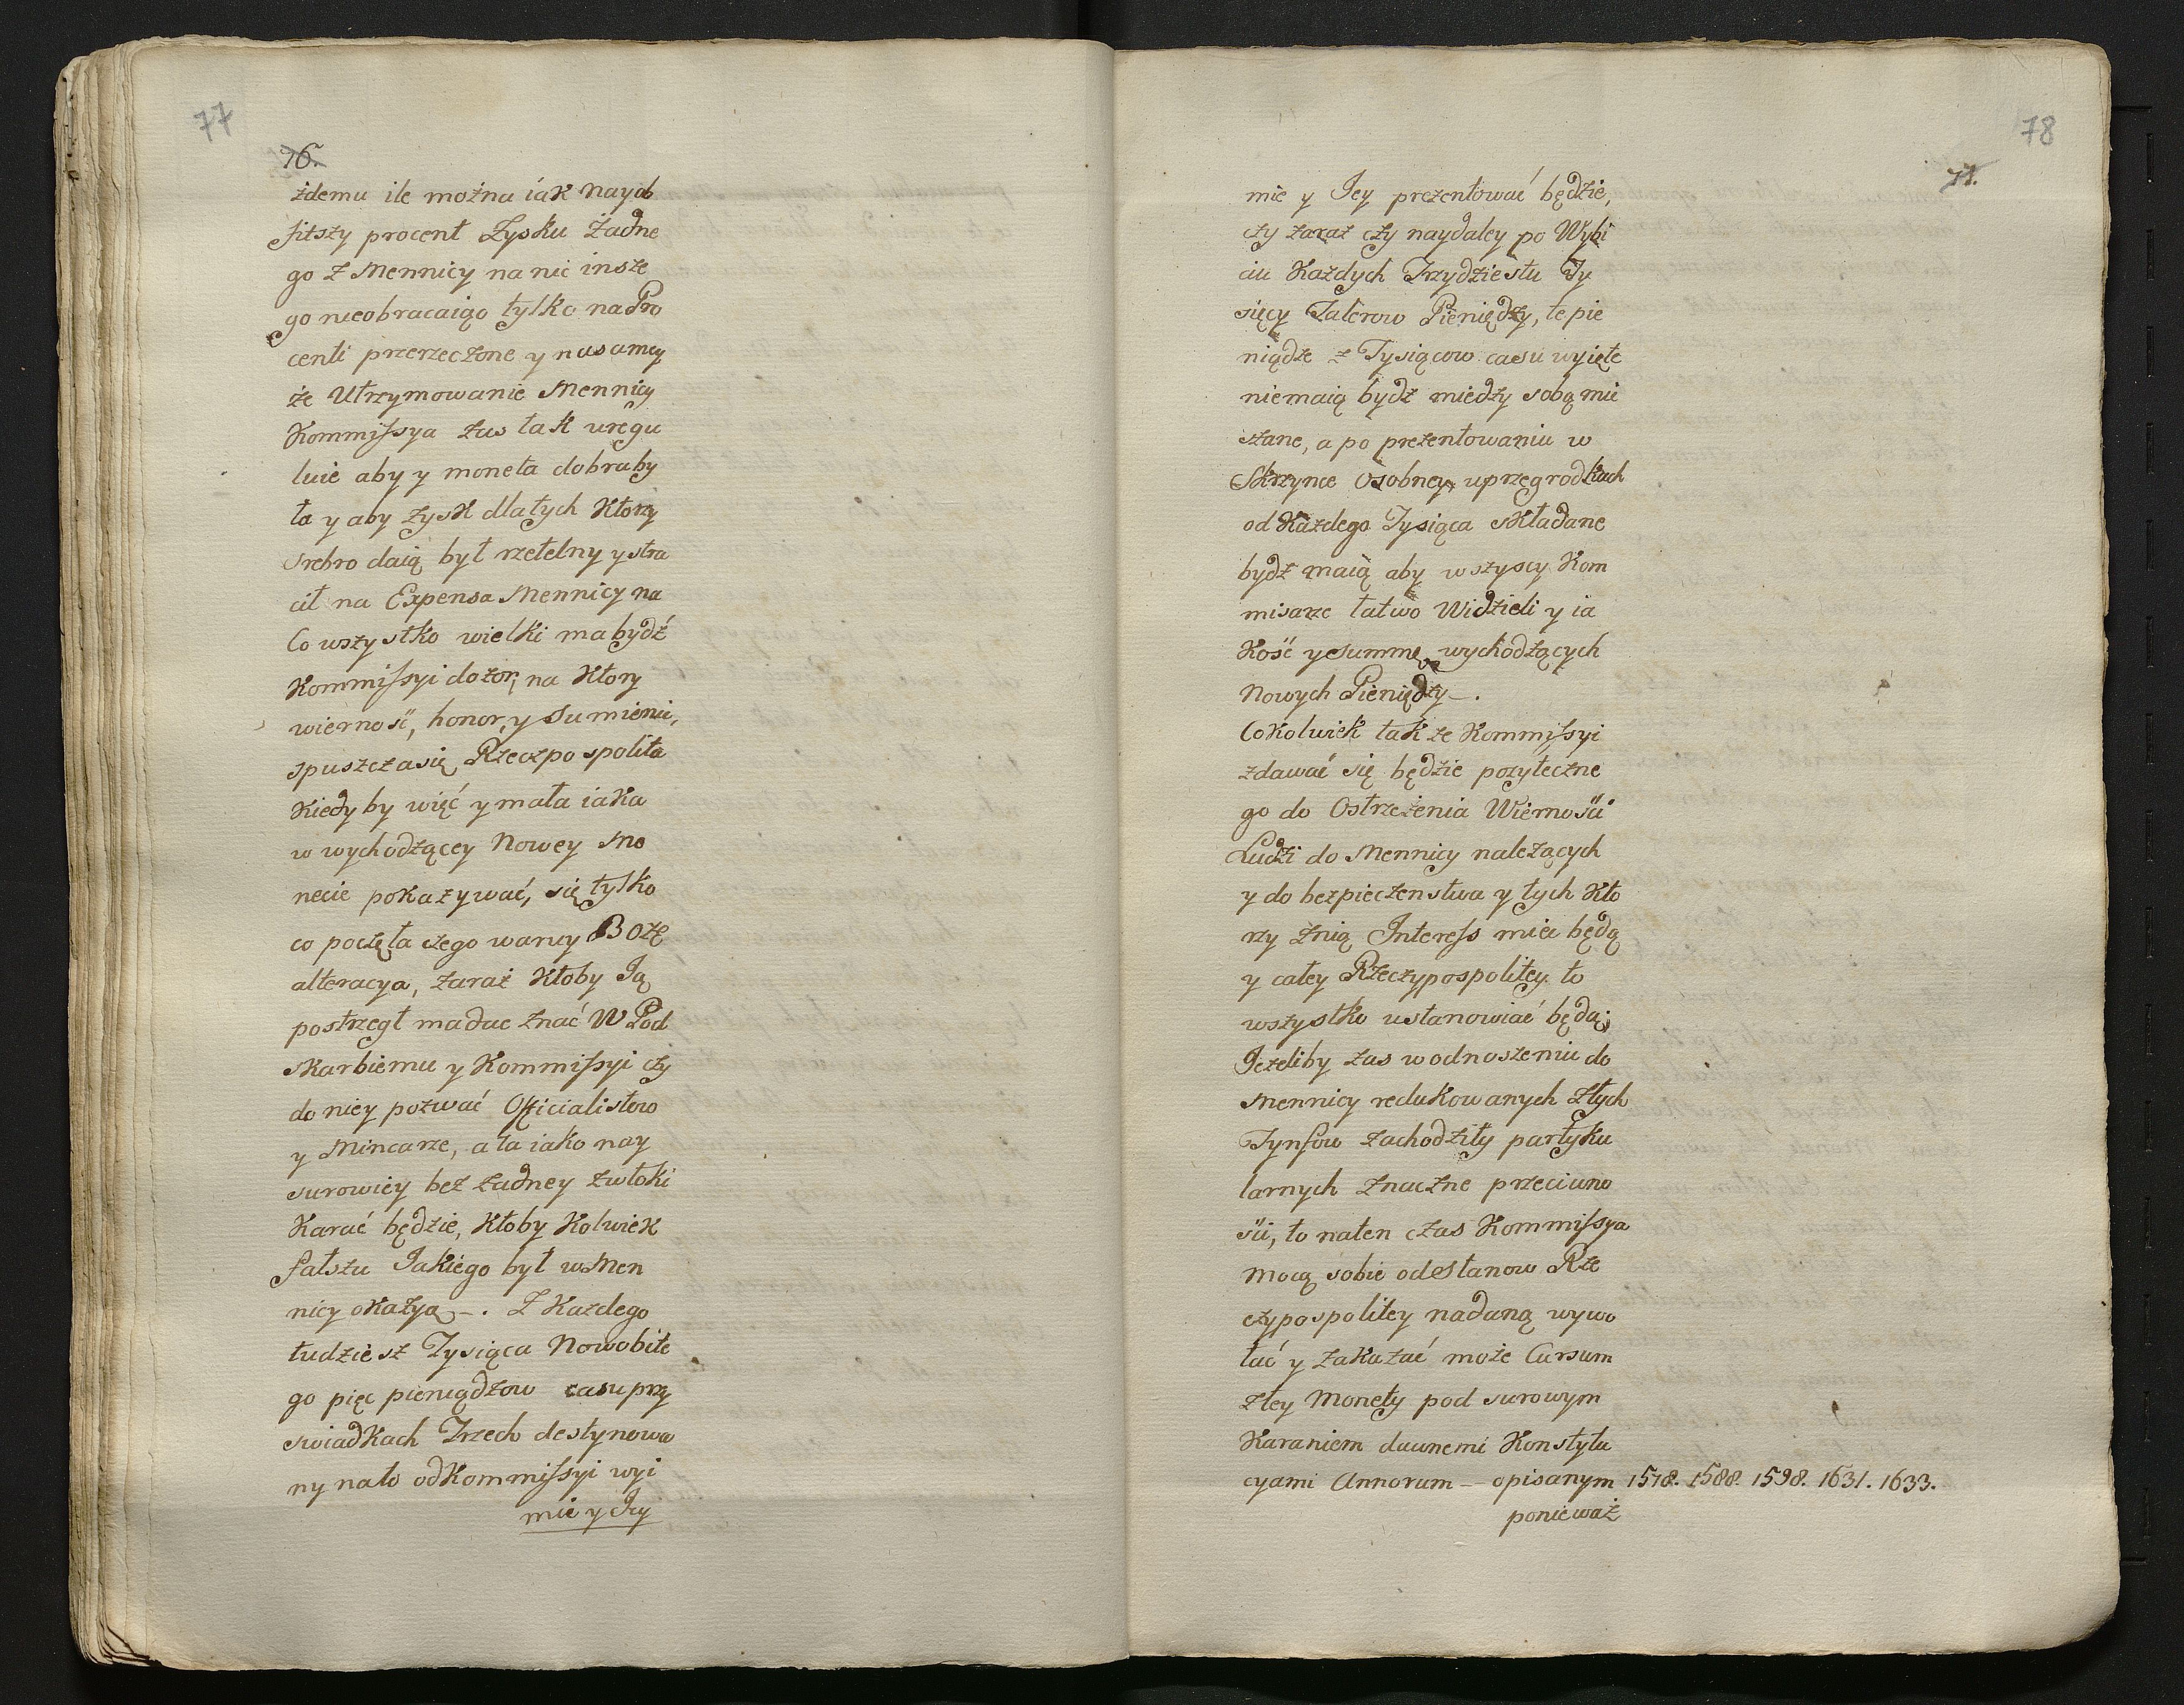 77
76.
żdemu ile można iak nayob
fitszy procent Zysku żadne
go z Mennicy na nic insze
go nieobracaiąc tylko na Pro
centi przerzeczone y na samey
że Utrzymowanie Mennicy
Kommissya zas tak uregu
luie aby y moneta dobra by
ła y aby zysk dla tych Ktorzy
srebro daią był rzetelny y stra
cił na Expensa Mennicy na
Co wszystko wielki ma bydź
Kommissyi dozor, na Ktory
wierność, honor, y Sumienie,
spuszcza się Rzeczpospolita
Kiedy by więć y mała iaka
w wychodzącey Nowey Mo
necie pokazywać, się tylko
co poczęła czego waruy Boże
alteracya, zaraz Ktoby Ją
postrzegł ma dac znać W Pod
skarbiemu y Kommissyi czy
do niey pozwać Officialistow
y Mincarze, a ta iako nay
surowiey bez żadney zwłoki
Karać będzie, Ktoby Kolwiek
fałszu Jakiego był w Men
nicy okazyą —. Z Każdego
tudziesz Tysiąca Nowobite
go pięc pieniądzow casu przy
swiadkach Trzech destynowa
ny na to od Kommissyi wyi
mie y Jey
78
77.
mie y Jey prezentować będzie,
czy zaraz czy naydaley po Wybi
ciu Każdych Trzydziestu Ty
sięcy Talerow Pieniędzy, te pie
niądze z Tysiącow casu wyięte
niemaią bydź miedzy sobą mie
szane, a po prezentowaniu w
Skrzynce Osobney w przegrodkach
od Każdego Tysiąca składane
bydź maią aby wszyscy Kom
misarze łatwo Widzieli y ia
Kość y summę wychodzących
Nowych Pieniędzy —.
Cokolwiek tak ze Kommissyi
zdawać się będzie pożyteczne
go do Ostrzeżenia Wiernośći
Ludzi do Mennicy należących
y do bezpieczenstwa y tych Kto
rzy znią Interess miec będą
y całey Rzeczypospolitey to
wszystko ustanowiać będą;
Jeżeliby zas w odnoszeniu do
Mennicy redukowanych złych
Tynfow zachodziły partyku
larnych znaczne przeciwno
sći, to naten czas Kommissya
Mocą sobie od Stanow Rze
czypospolitey nadaną wywo
łać y zakazać może Cursum
złey Monety pod surowym
Karaniem dawnemi Konstytu
cyami Annorum — opisanym 1578. 1588. 1598. 1631. 1633.
ponieważ